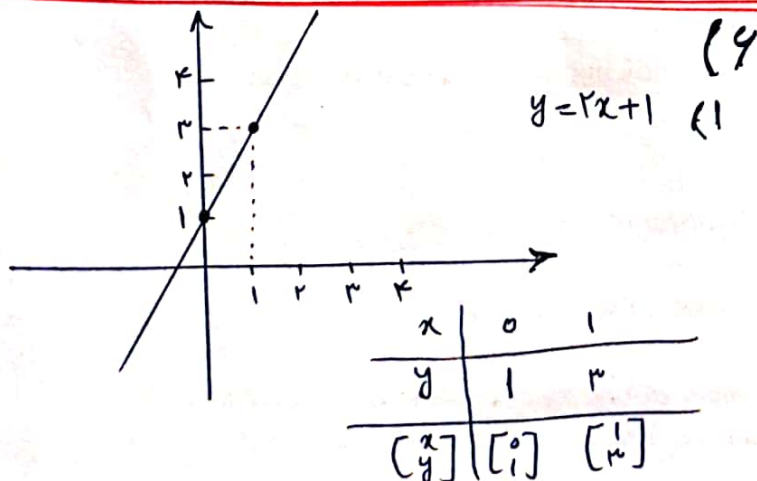 (۶
۱) y=۲x+۱
۴
۳
۲
۱
۱ ۲ ۳ ۴
x 0 ۱
y ۱ ۳
[x y] [0 ۱] [۱ ۳]